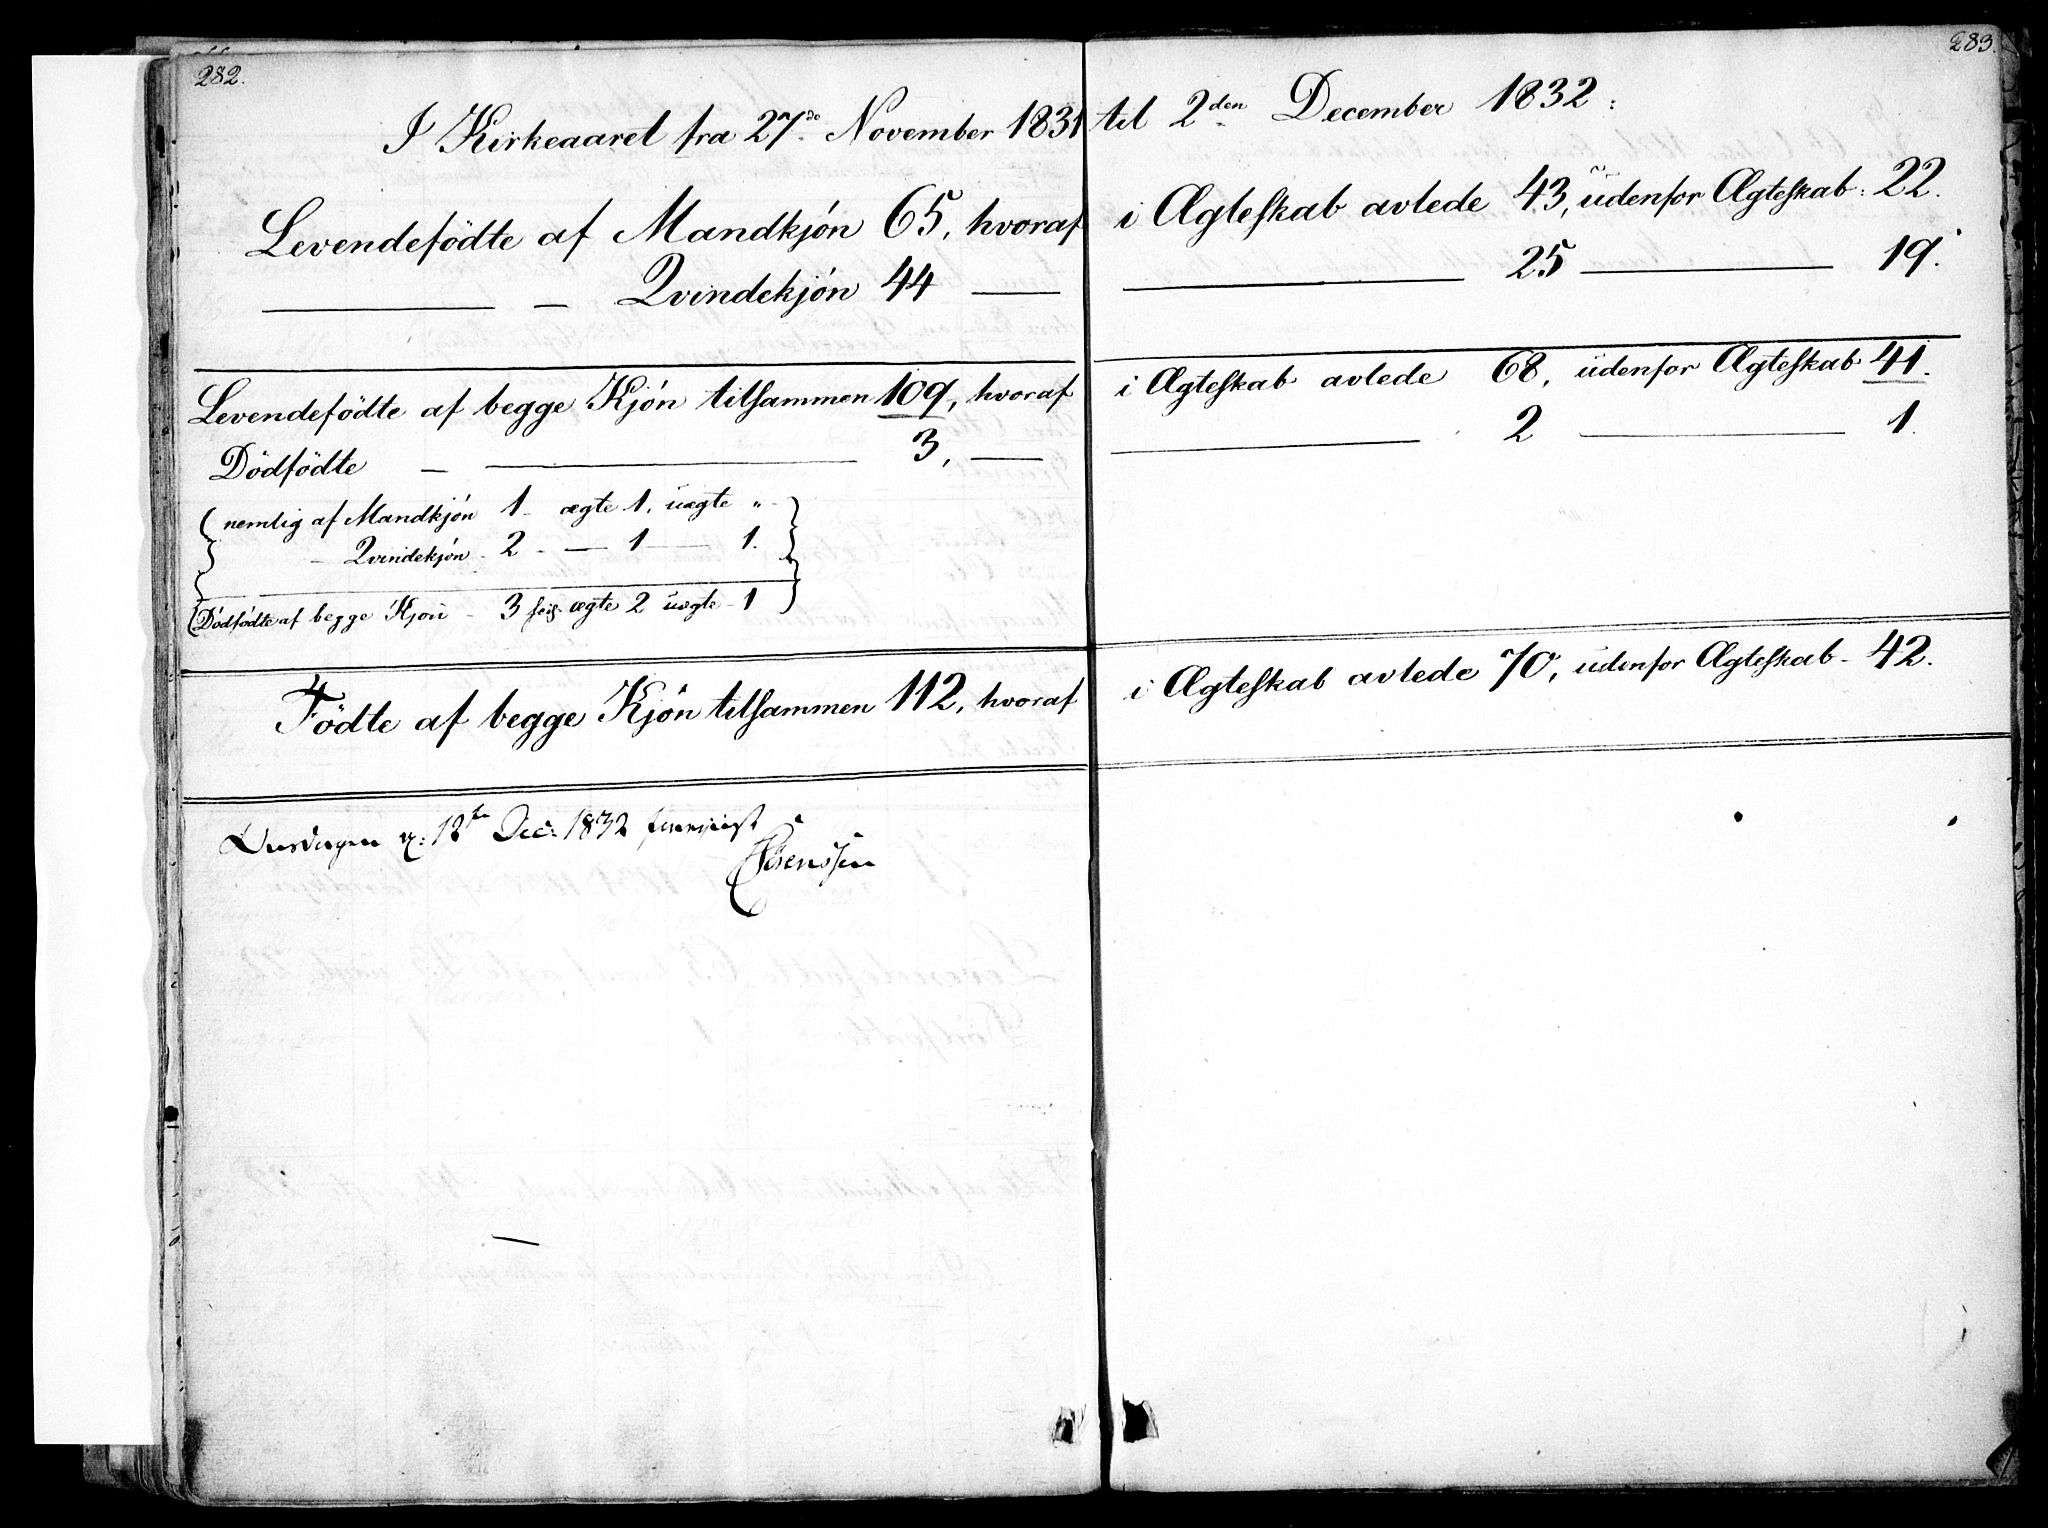 282.
283.
I Kirkeaaret fra 27de November 1831 til 2den December 1832:
Levendefödte af Mandkjön 65, hvoraf i Ægteskab avlede 43, udenfor Ægteskab: 22.
— Qvindekjön 44 — 25 — 19.
Levendefödte af begge Kjön tilsammen 109, hvoraf i Ægteskab avlede 68, udenfor Ægteskab 41.
Dödfödte — 3, — 2 — 1.
nemlig af Mandkjön 1 - ægte 1, uægte "
- Qvindekjön - 2 - — 1 — 1.
Dödfödte af begge Kjön - 3 ægte 2 uægte - 1
Födte af begge Kjön tilsammen 112, hvoraf i Ægteskab avlede 70, udenfor Ægteskab - 42.
12te Dec: 1832
Sörenssen